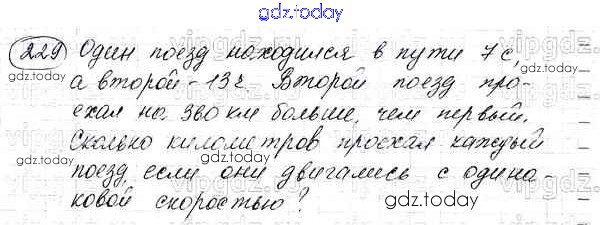 gdz.today
229 Один поезд находился в пути 7 с,
а второй - 13 г. Второй поезд про-
ехал на 360 км больше, чем первый.
Сколько километров проехал каждый
поезд, если они двигались с одина-
ковой скоростью?
gdz.today
gdz.today
gdz.today
gdz.today
gdz.today
gdz.today